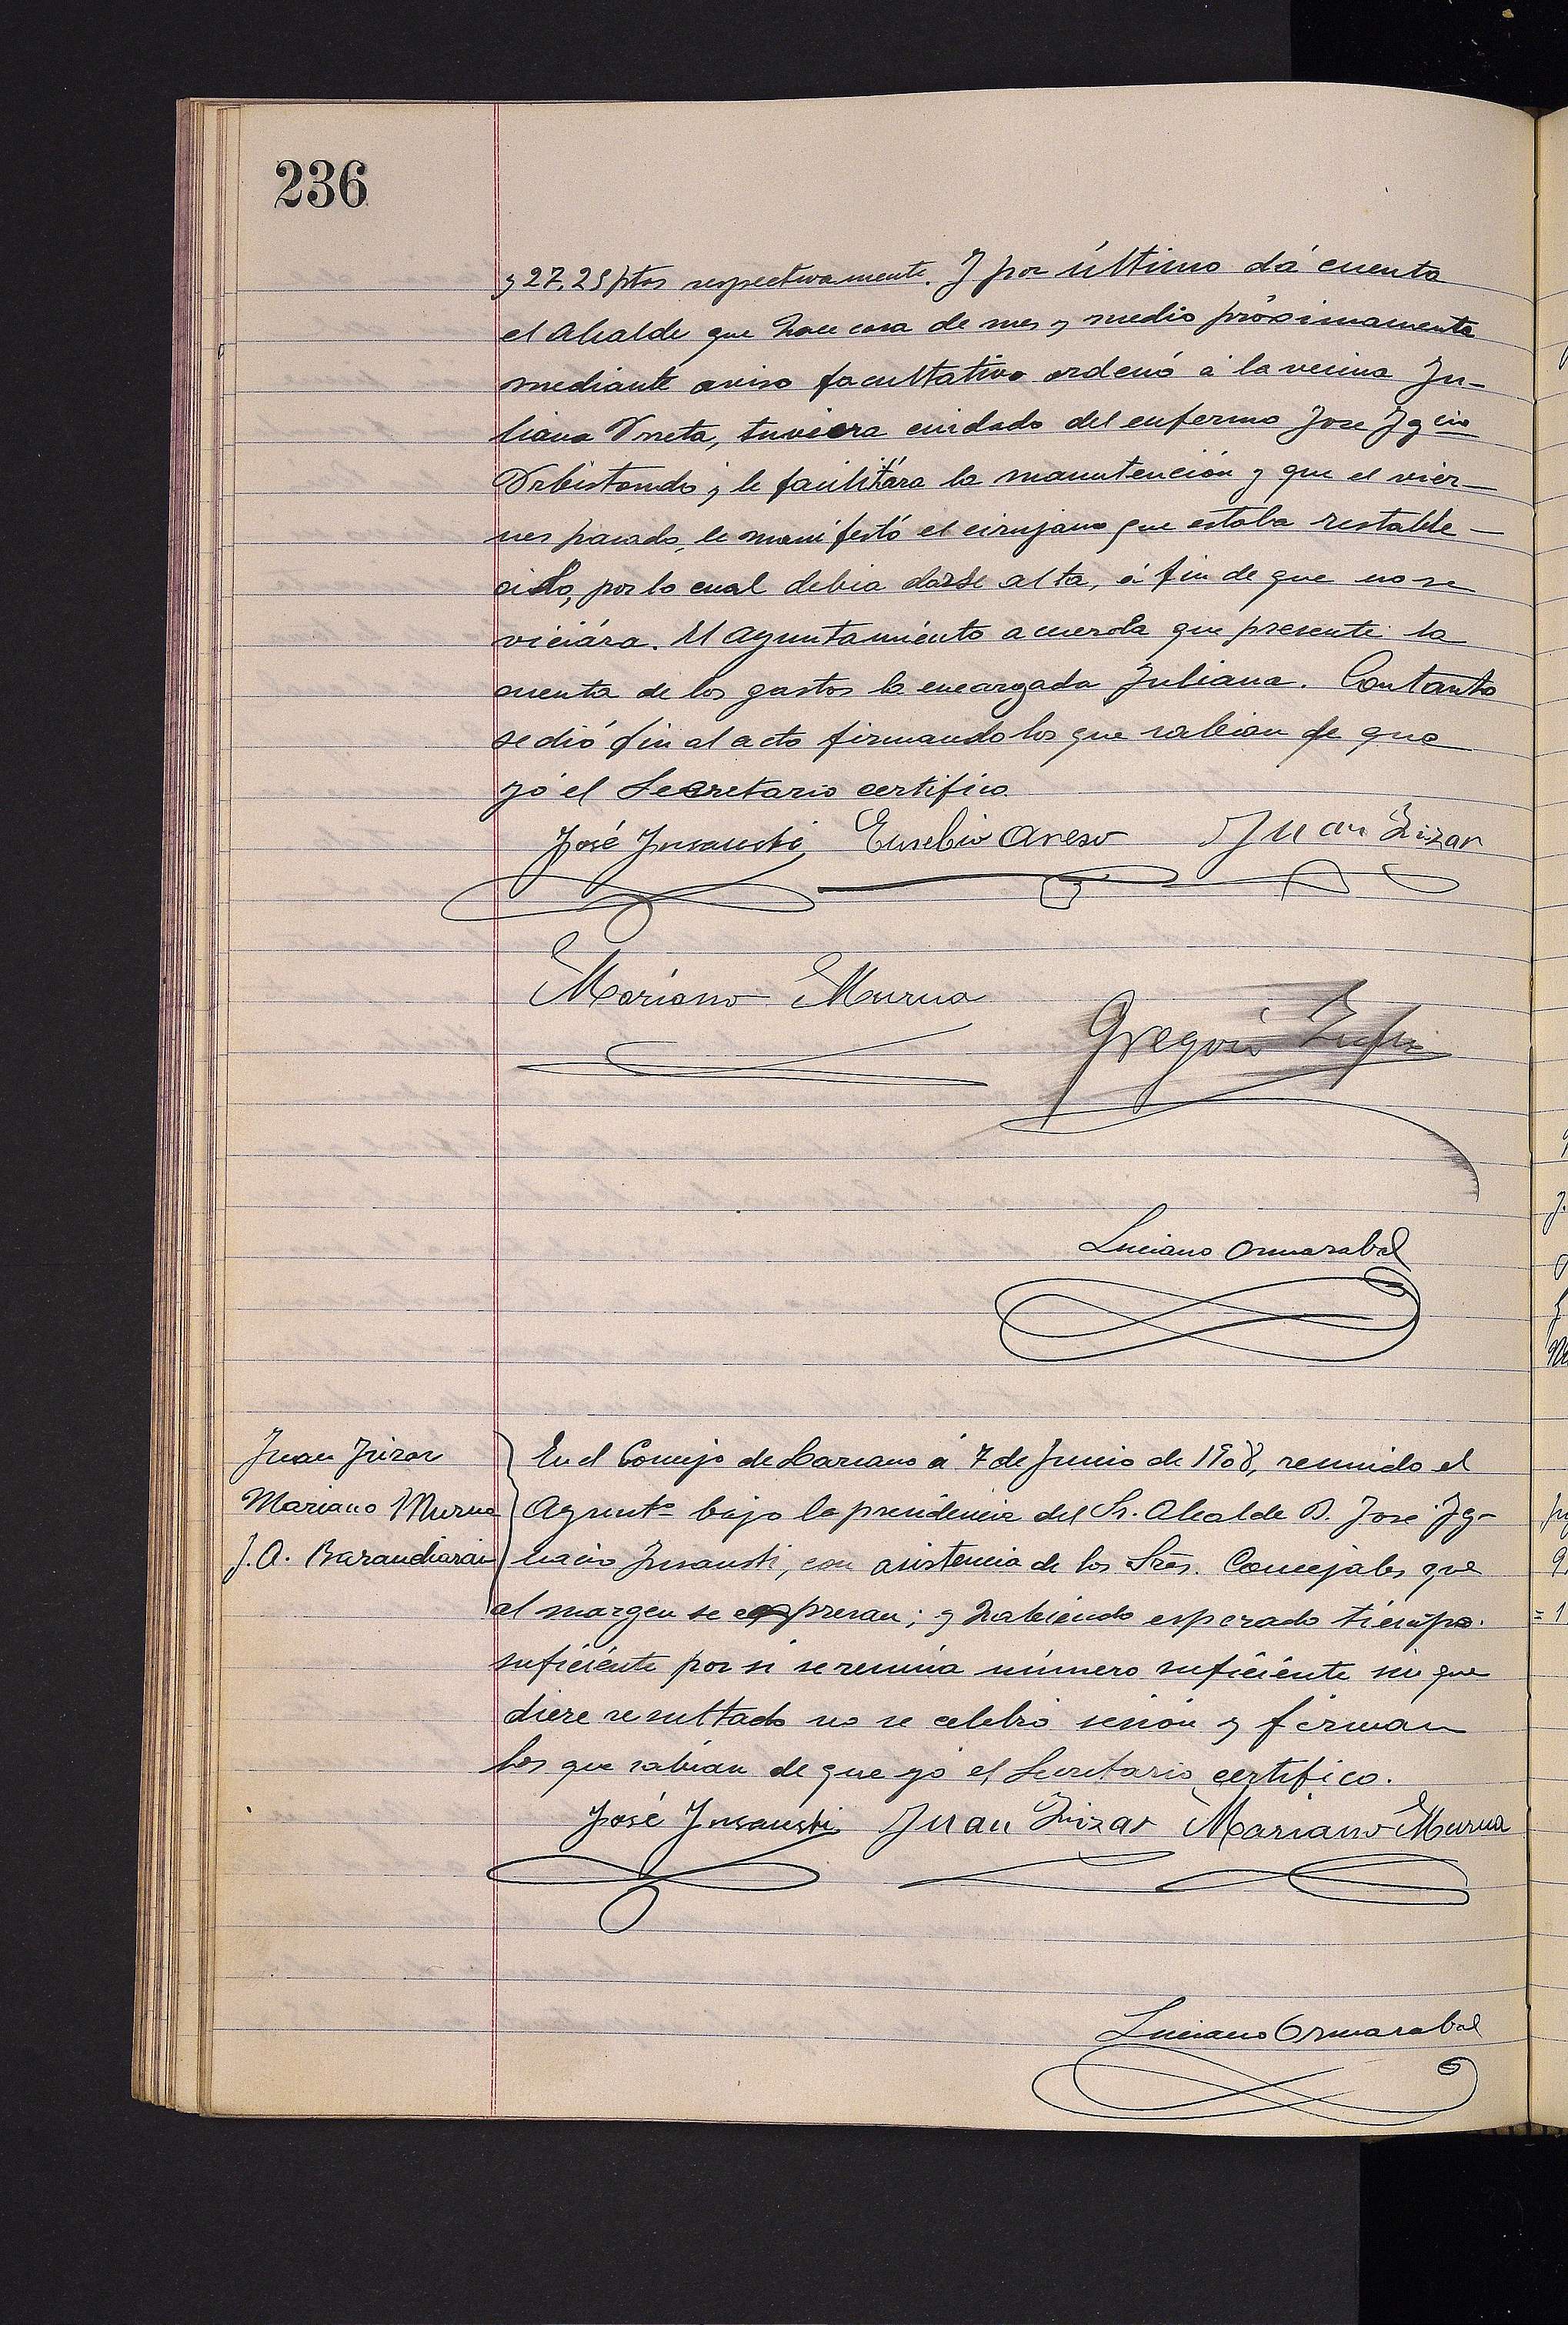 236
y 27,25 ptas respectivamente. Y por último dá cuenta
el Alcalde que hace cosa de mes y medio próximamente
mediante aviso facultativo ordenó á la vecina Ju-
liana Urreta, tuviera cuidado del enfermo Jose Ygcio
Urbistondo y le facilitára la manutención y que el vier-
nes pasado, le manifestó el cirujano que estaba restable-
cido, por lo cual debia darse alta, á fin de que no se
viciára. El Ayuntamiento acuerda que presente la
cuenta de los gastos la encargada Juliana. Con tanto
se dió fin al acto firmando los que sabian de que
yó el Secretario certifico
José Ynsausti Eusebio Areso Juan Yrizar
Mariano Murua
Gregorio
Luciano Ormazabal
Juan Yrizar
Mariano Murua
J. A. Barandiarain
En el Concejo de Lazcano á 7 de Junio de 1908, reunido el
Ayuntº bajo la presidencia del Sr. Alcalde D. Jose Yg-
nacio Ynsausti, con asistencia de los Sres. Concejales que
al margen se expresan; y habiendo esperado tiempo
suficiente por si se reunia número suficiente sin que
diere resultado no se celebró sesión y firman
los que sabian de que yó el Secretario certifico.
José Ynsausti Juan Yrizar Mariano Murua
Luciano Ormazabal